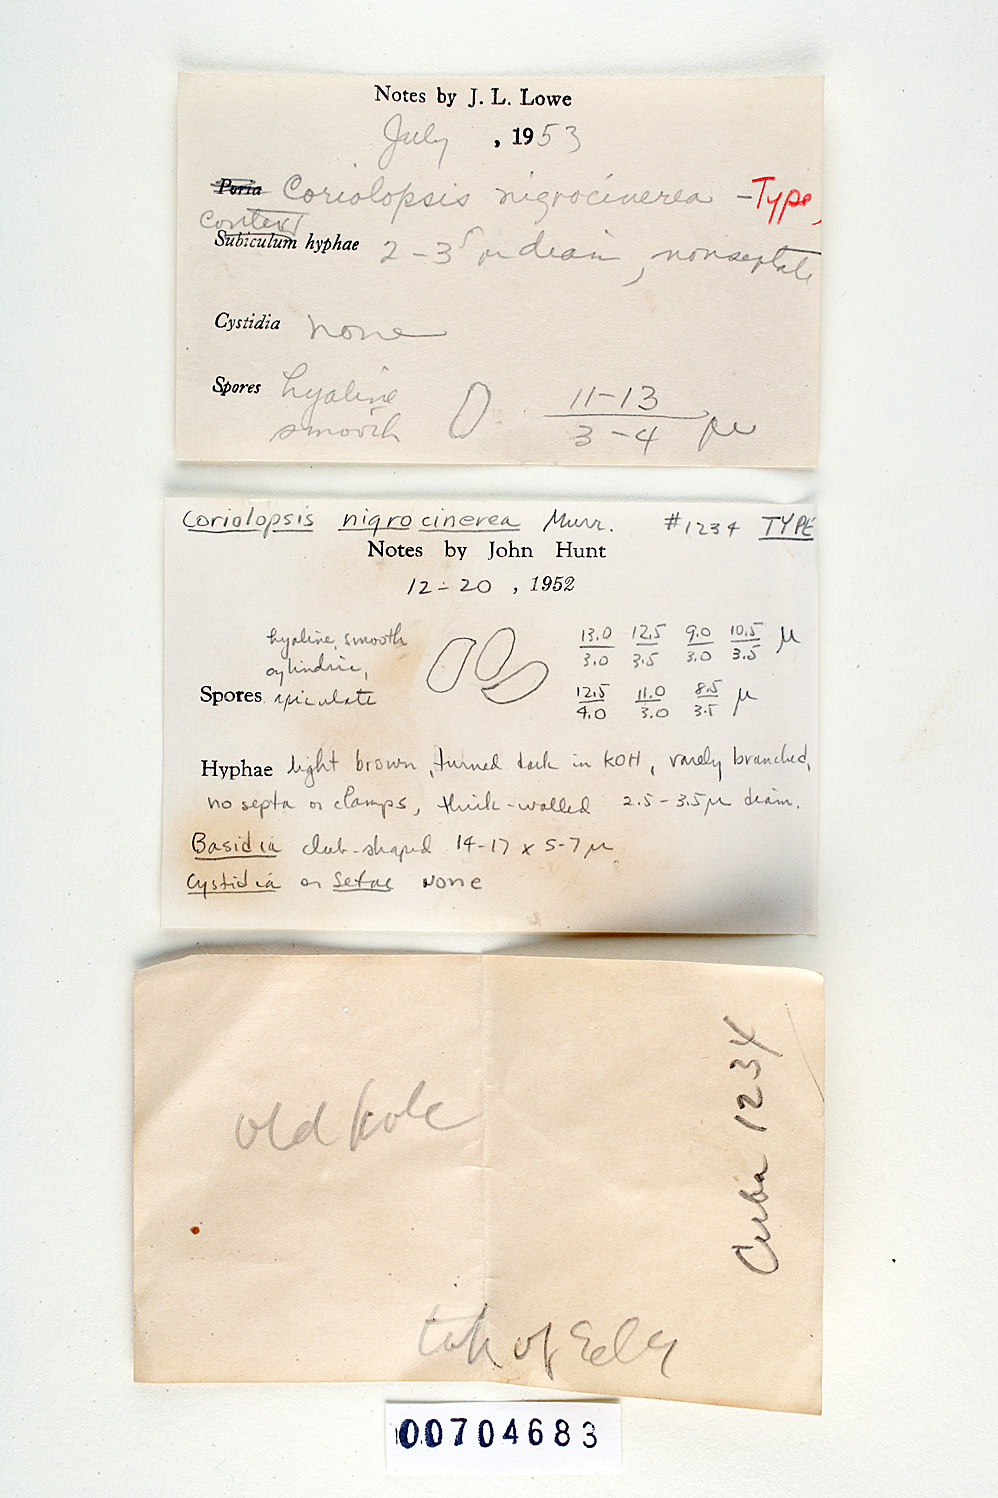 Notes by J. L. Lowe
July , 1953
Poria Coriolopsis nigrocinerea - Type,
Context
Subiculum hyphae 2-3⁵ μ diam, nonseptate
Cystidia none
Spores hyaline smooth 11-13/3-4 μ
Coriolopsis nigrocinerea Murr. #1234 TYPE
Notes by John Hunt
12-20, 1952
hyaline, smooth
cylindric,
Spores apiculate
13.0/3.0 12.5/3.5 9.0/3.0 10.5/3.5 μ
12.5/4.0 11.0/3.0 8.5/3.5 μ
Hyphae light brown, turned dark in KOH, rarely branched,
no septa or clamps, thick-walled 2.5-3.5μ diam.
Basidia club-shaped 14-17 x 5-7 μ
Cystidia or Setae None
old
Cuba 1234
of
00704683